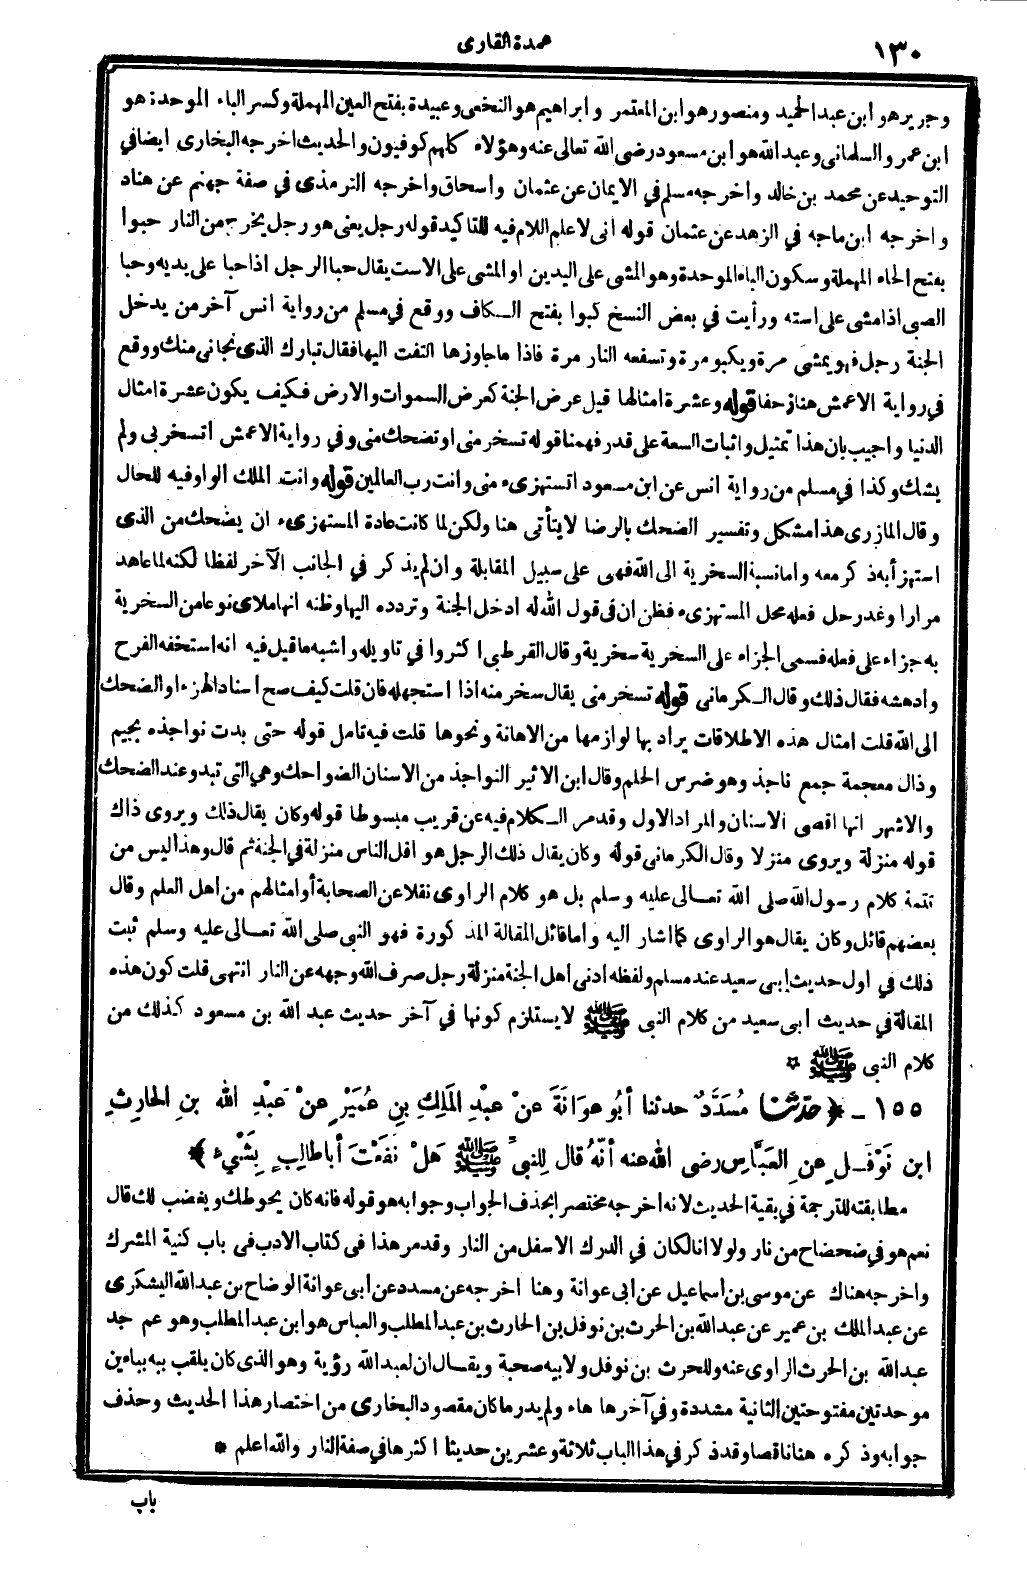 ١٣٠
عمدة القارى
وجرير هو ابن عبد الحميد ومنصور هو ابن المعتمر وابراهيم هو النخعى وعبيدة بفتح العين المهملة وكسر الباء الموحدة هو
ابن عمرو السلمانى وعبد الله هو ابن مسعود رضى الله تعالى عنه وهؤلاء كلهم كوفيون والحديث اخرجه البخارى ايضا في
التوحيد عن محمد بن خالد واخرجه مسلم في الايمان عن عثمان واسحاق واخرجه الترمذى في صفة جهنم عن هناد
واخرجه ابن ماجه في الزهد عن عثمان قوله انى لاعلم اللام فيه للتاكيد قوله رجل يعنى هو رجل يخرج من النار حبوا
بفتح الحاء المهملة وسكون الباء الموحدة وهو المشى على اليدين او المشى على الاست يقال حبا الرجل اذا حبا على يديه وحبا
الصبى اذا مشى على استه ورأيت في بعض النسخ كبوا بفتح الكاف ووقع في مسلم من رواية انس آخر من يدخل
الجنة رجل فهو يمشى مرة ويكبو مرة وتسفعه النار مرة فاذا ما جاوزها التفت اليها فقال تبارك الذى نجانى منك ووقع
في رواية الاعمش هنا زحفا قوله وعشرة امثالها قيل عرض الجنة كعرض السموات والارض فكيف يكون عشرة امثال
الدنيا واجيب بان هذا تمثيل واثبات السعة على قدر فهمنا قوله تسخر منى او تضحك منى وفي رواية الاعمش اتسخر بى ولم
يشك وكذا في مسلم من رواية انس عن ابن مسعود اتستهزىء منى وانت رب العالمين قوله وانت الملك الواو فيه للحال
وقال المازرى هذا مشكل وتفسير الضحك بالرضا لا يتأتى هنا ولكن لما كانت عادة المستهزىء ان يضحك من الذى
استهزأ به ذكر معه واما نسبة السخرية الى الله فهى على سبيل المقابلة وان لم يذكر في الجانب الآخر لفظا لكنه لما عاهد
مرارا وغدر حل فعله محل المستهزىء فظن ان فى قول الله له ادخل الجنة وتردده اليها وظنه انها ملاى نوعا من السخرية
به جزاء على فعله فسمى الجزاء على السخرية سخرية وقال القرطبى اكثروا في تاويله واشبه ما قيل فيه انه استخفه الفرح
وادهشه فقال ذلك وقال الكرمانى قوله تسخر منى يقال سخر منه اذا استجهله فان قلت كيف صح اسناد الهزء او الضحك
الى الله قلت امثال هذه الاطلاقات يراد بها لوازمها من الاهانة ونحوها قلت فيه تامل قوله حتى بدت نواجذه بجيم
وذال معجمة جمع ناجذ وهو ضرس الحلم وقال ابن الاثير النواجذ من الاسنان الضواحك وهي التى تبدو عند الضحك
والاشهر انها اقصى الاسنان والمراد الاول وقد مر الكلام فيه عن قريب مبسوطا قوله وكان يقال ذلك ويروى ذاك
قوله منزلة ويروى منزلا وقال الكرمانى قوله وكان يقال ذلك الرجل هو اقل الناس منزلة في الجنة ثم قال وهذا ليس من
تتمة كلام رسول الله صلى الله تعالى عليه وسلم بل هو كلام الراوى نقلا عن الصحابة أو امثالهم من اهل العلم وقال
بعضهم قائل وكان يقال هو الراوى كما اشار اليه واما قائل المقالة المذكورة فهو النبى صلى الله تعالى عليه وسلم ثبت
ذلك في اول حديث ابى سعيد عند مسلم ولفظه ادنى أهل الجنة منزلة رجل صرف الله وجهه عن النار انتهى قلت كون هذه
المقالة في حديث ابى سعيد من كلام النبى ﷺ لا يستلزم كونها في آخر حديث عبد الله بن مسعود كذلك من
كلام النبى ﷺ *
١٥٥ - ﴿ حَدَّثَنَا مُسَدَّدٌ حدثنا أبُو عَوَانَةَ عنْ عبْدِ المَلِكِ بنِ عُمَيْرٍ عنْ عَبْدِ الله بنِ الحارِثِ
ابنِ نَوْفَلٍ عنِ العَبَّاسِ رضى الله عنه أنَّهُ قال لِلنبى ﷺ هَلْ نفَعْتَ أبا طالِبٍ بِشَىْءٍ ﴾
مطابقته للترجمة في بقية الحديث لانه اخرجه مختصرا بحذف الجواب وجوابه هو قوله فانه كان يحوطك ويغضب لك قال
نعم هو في ضحضاح من نار ولولا انا لكان في الدرك الاسفل من النار وقد مر هذا فى كتاب الادب فى باب كنية المشرك
واخرجه هناك عن موسى بن اسماعيل عن ابى عوانة وهنا اخرجه عن مسدد عن ابى عوانة الوضاح بن عبد الله اليشكرى
عن عبد الملك بن عمير عن عبد الله بن الحرث بن نوفل بن الحارث بن عبد المطلب والعباس هو ابن عبد المطلب وهو عم جد
عبد الله بن الحرث الراوى عنه وللحرث بن نوفل ولابيه صحبة ويقال ان لعبد الله رؤية وهو الذى كان يلقب ببه بباءين
موحدتين مفتوحتين الثانية مشددة وفي آخرها هاء ولم يدر ما كان مقصود البخارى من اختصار هذا الحديث وحذف
جوابه وذكره هنا ناقصا وقد ذكر في هذا الباب ثلاثة وعشرين حديثا اكثرها في صفة النار والله اعلم *
باب